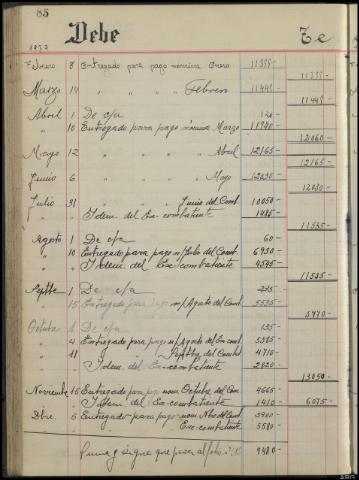 85
Debe
Febrero 8 Entregado para pago nómina Enero 11355-
11355-
Marzo 14 " " " " Febrero 11445-
11445-
Abril 1 De c/a 120-
" 10 Entregado para pago nómina Marzo 11940-
12060-
Mayo 12 " " " " Abril 12165-
12165-
Junio 6 " " " " Mayo 12030-
12030-
Julio 31 " " " " Junio del Comb. 10050-
" Idem. del Ex-combatiente 1485-
11535-
Agosto 1 De c/a 60-
" 10 Entregado para pago n/ Julio del Comb. 6930-
" Idem. del Ex-combatiente 4545-
11535-
Septbe 1 De c/a
15 Entregado para pago n/ Agosto del Com. 5535-
5970-
Octubre 1 De c/a 135-
" 4 Entregado para pago n/ Agosto del Ex-comb 5385-
" 11 " " " " Septbre del Combt 4710-
Idem del Ex-combatiente 2820-
13050-
Noviembre 15 Entregado para pago nom. Octubre del Com 4665-
" " Idem del Ex-combatiente 1410- 6075-
Dbre. 6 Entregado para pago nom. Nbre del Comb. 3900-
" " " " " Ex-combatiente 5580-
Suma y sigue que pasa al folio 9480-